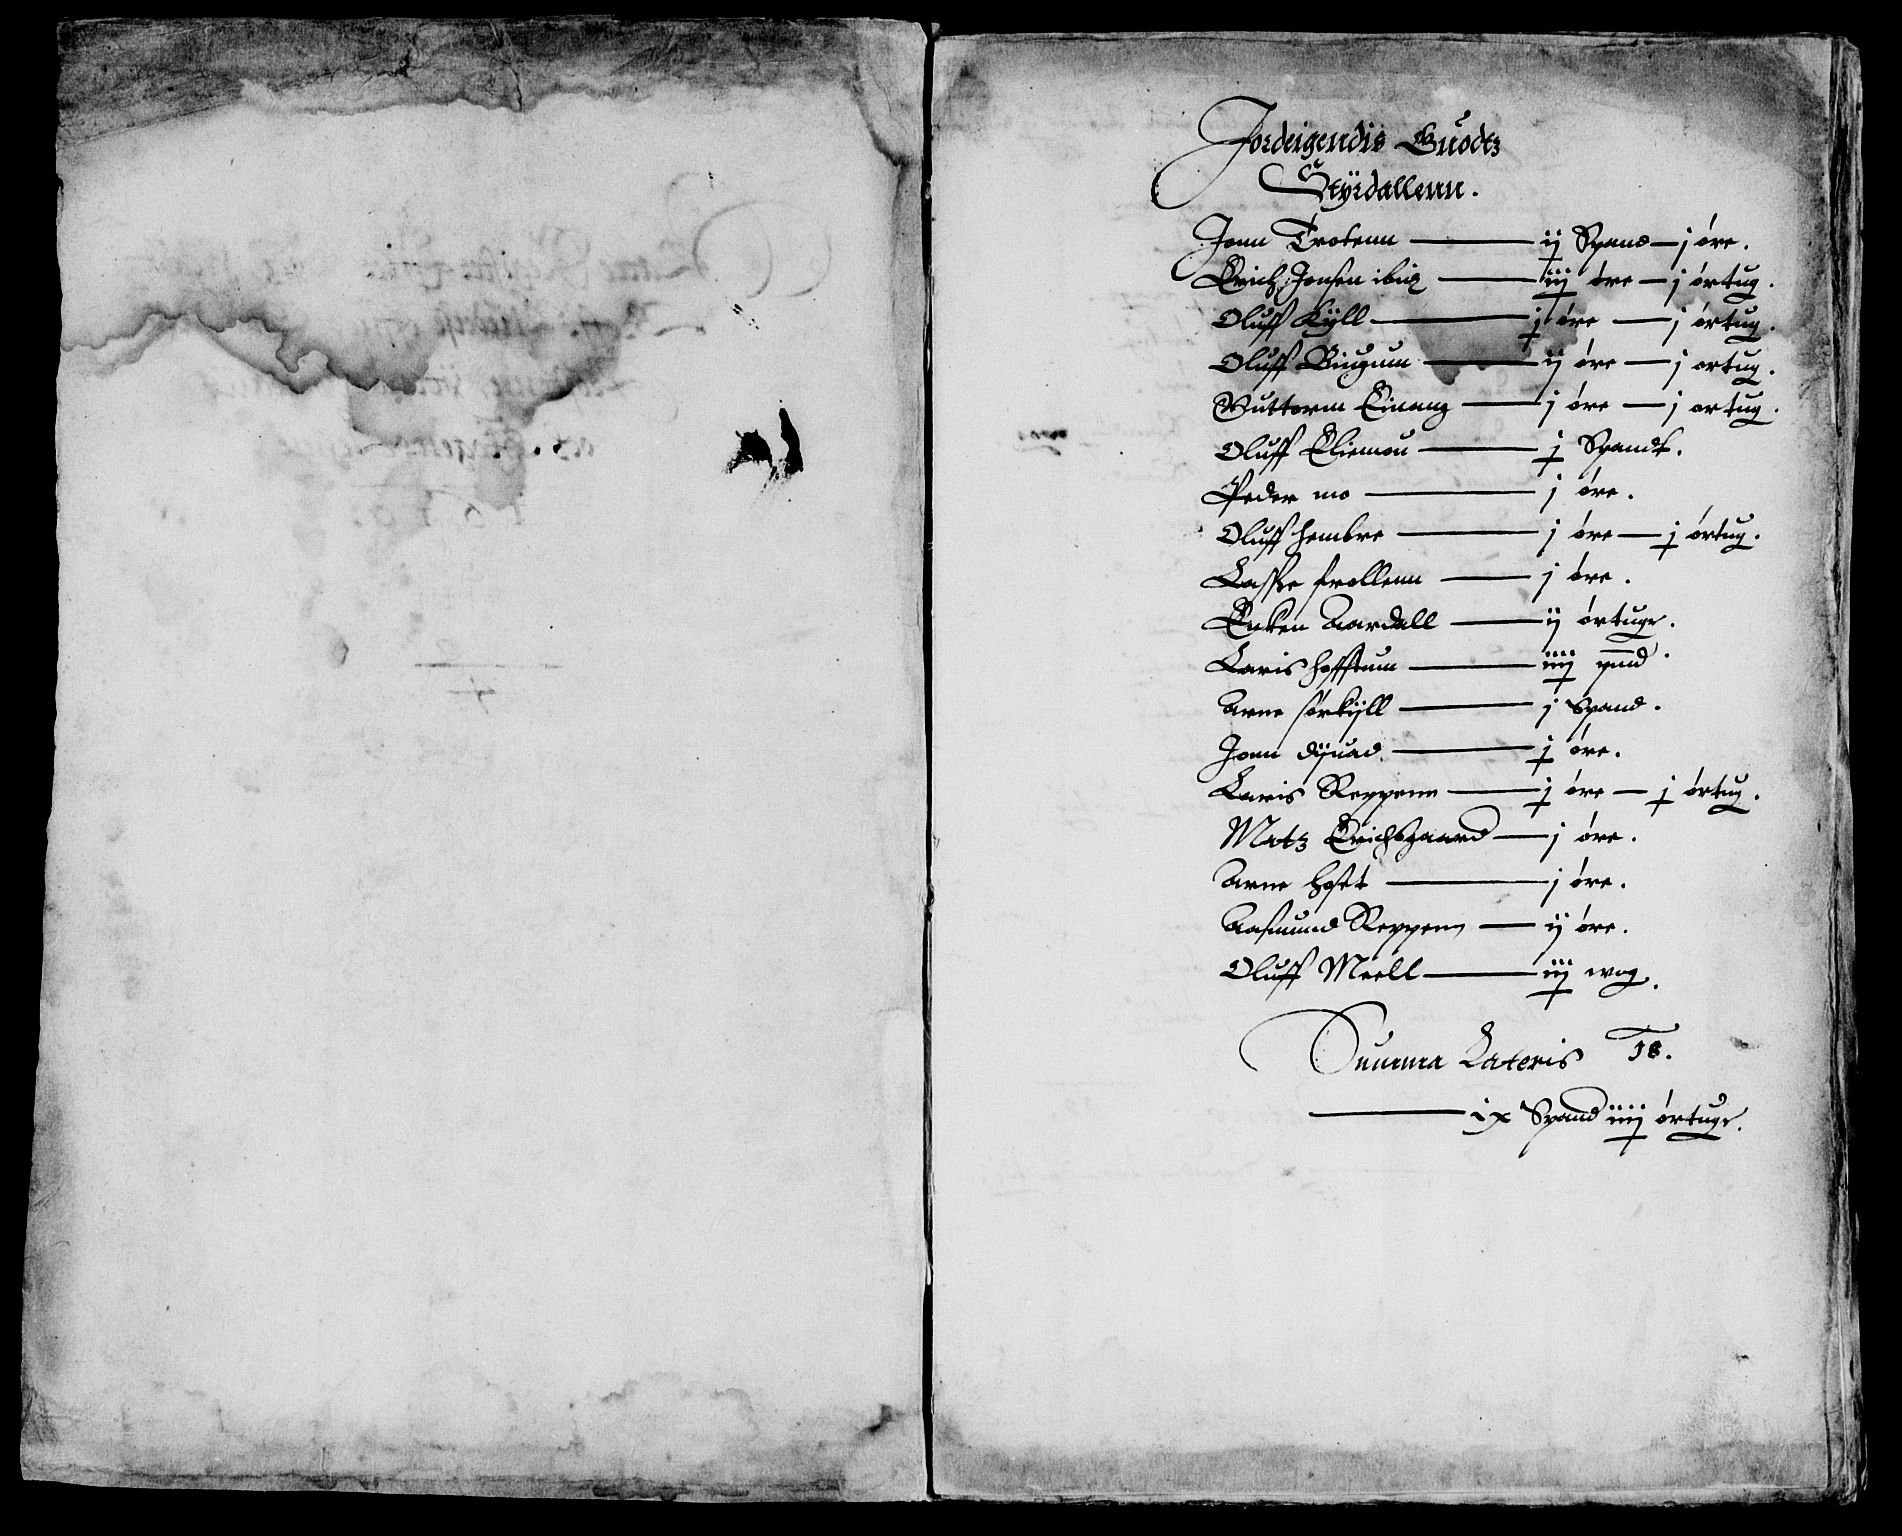 Jordeigendis Guodtz
Styrdallenn.
Jonn Trotenn — ij Spand — j øre.
Erich Jonsen ibid — iij øre — j ørtug.
Oluff Kyll — j øre — j ørtug.
Oluff Biugum — ij øre — j ørtug.
Guttorm Einang — j øre — j ørtug.
Oluff Eliemou — j Spandt.
Peder mo — j øre.
Oluff hembre — j øre — j ørtug.
Lasse frollenn — j øre.
Encken Aardall — ij ørtuge.
Laris hofstum — iiij pund.
Arne sørkyll — j Spand.
Jonn dyuad — j øre.
Laris Reppenn — j øre — j ørtug.
Matz Erichsgaard — j øre.
Arne hoset — j øre.
Aasmund Reppenn — ij øre.
Oluff Meell — iij wog.
Summa Lateris 18.
— ix Spand iiij ørtuge.